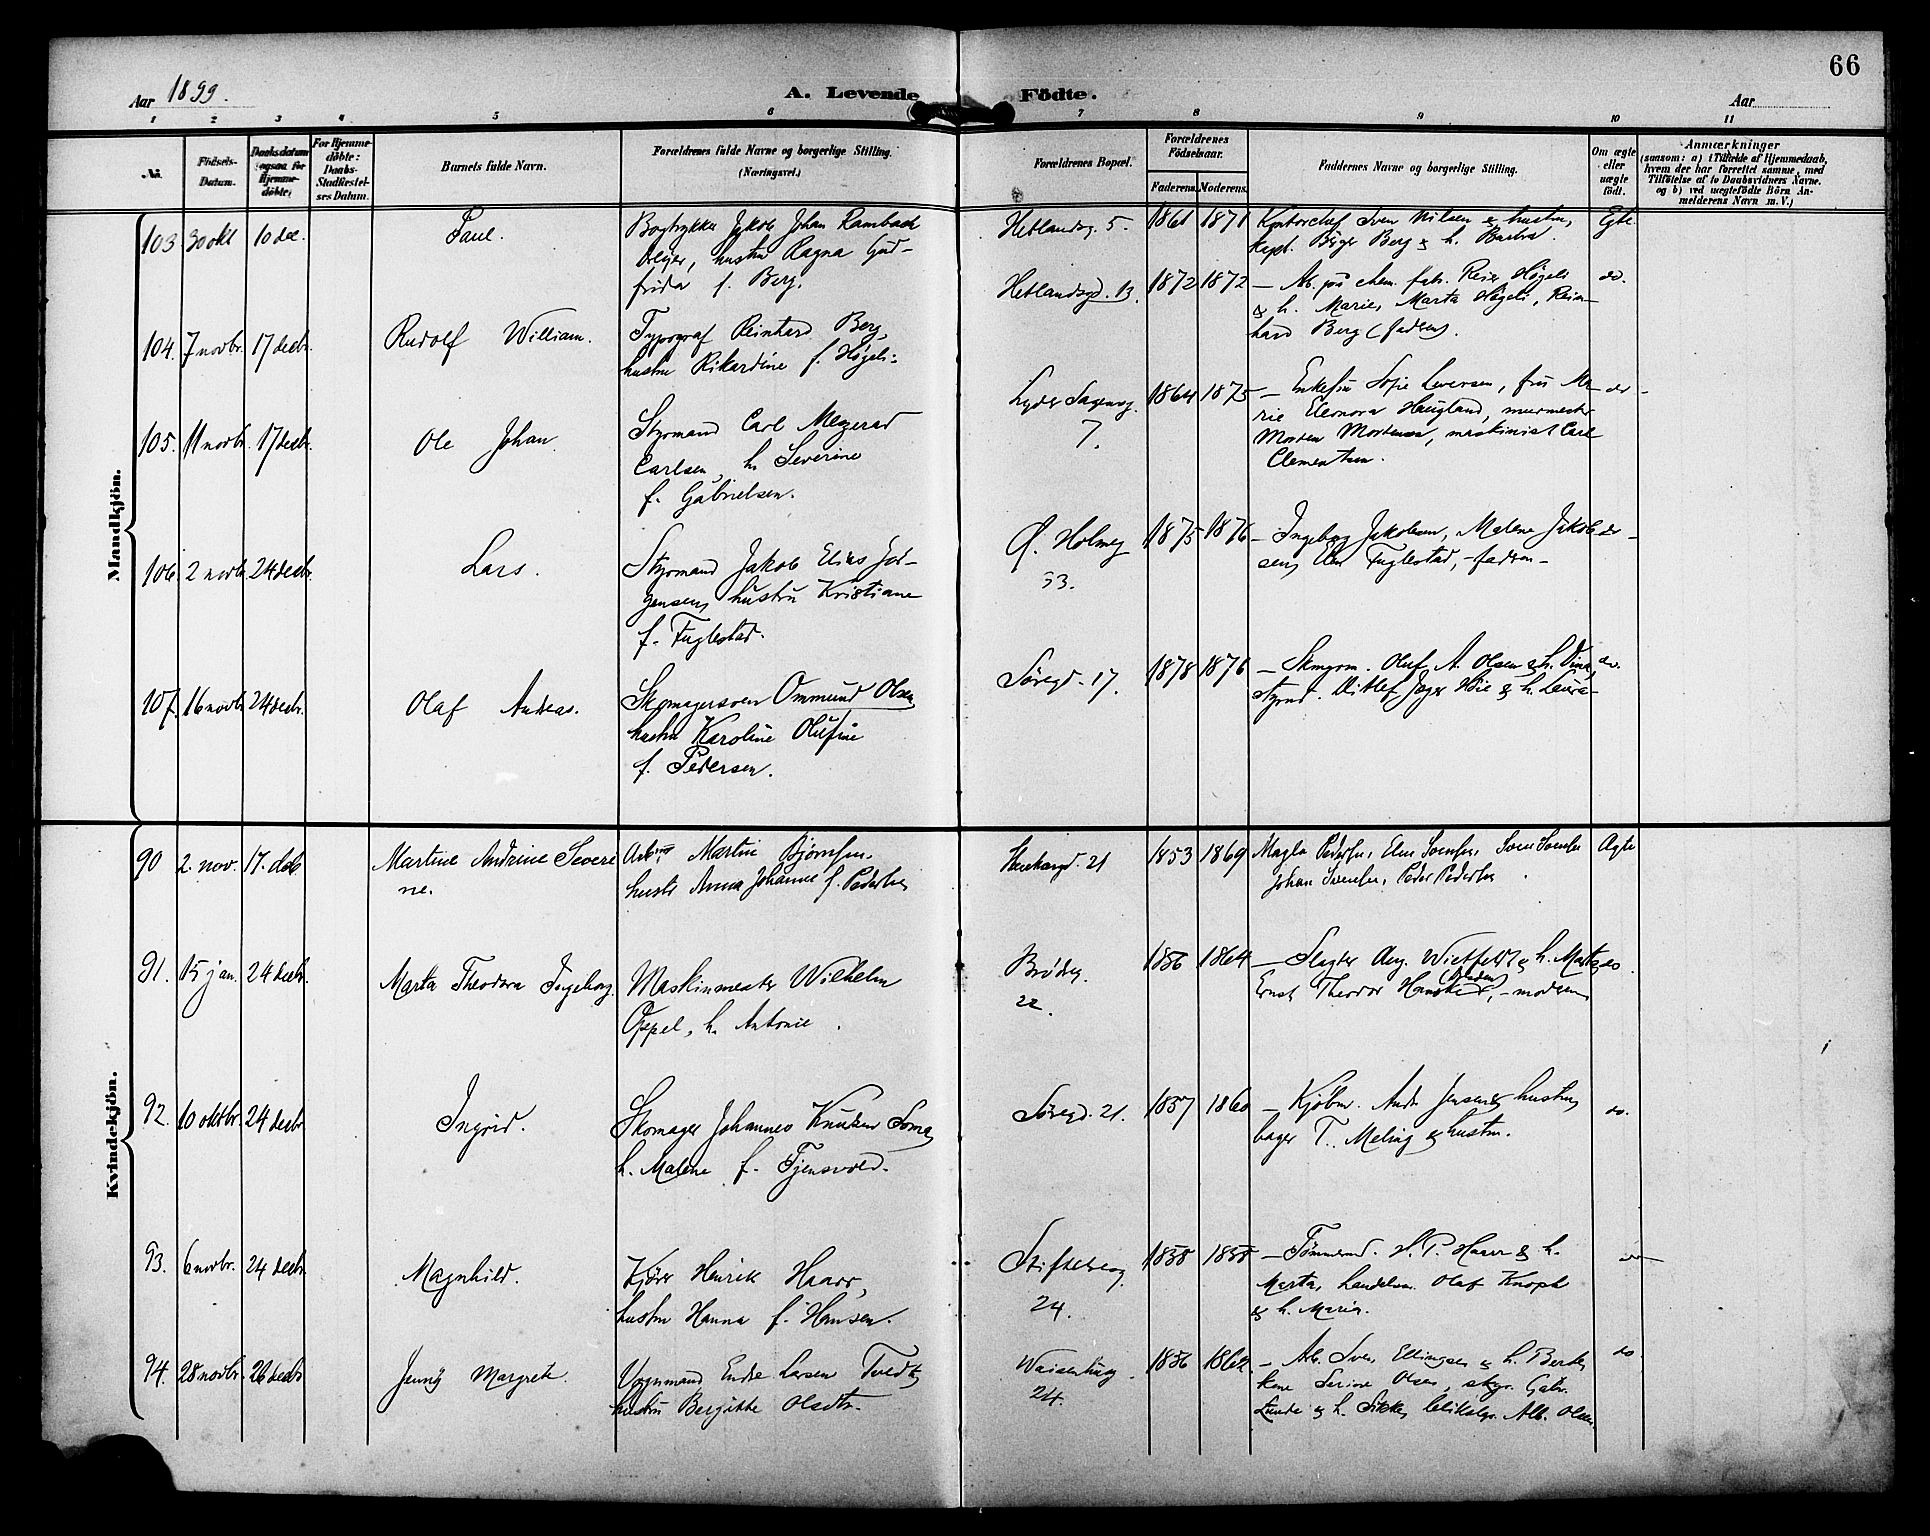 66
Aar 1899.
A. Levende Födte.
Aar
1 2 3 4 5 6 7 8 9 10 11
No.
Födsels-Datum.
Daabsdatum (ogsaa for Hjemmedöbte)
For Hjemmedöbte: Daabs-Stadfæstelses Datum.
Barnets fulde Navn.
Forældrenes fulde Navne og borgerlige Stilling.
(Næringsvei.)
Forældrenes Bopæl.
Forældrenes Födselsaar.
Faderens. Moderens.
Faddernes Navne og borgerlige Stilling.
Om ægte eller uægte födt.
Anmærkninger
(saasom: a) i Tilfælde af Hjemmedaab, hvem der har forrettet samme, med Tilföielse af to Daabsvidners Navne, og b) ved uægtefödte Börn Anmelderens Navn m. V.)
Mandkjön.
103 30 okt 10 dec.
Paul.
Bogtrykker Jakob Johan Rambech
Dreyer, hustru Ragna Gud-
frida f. Berg.
Hetlandsg. 5.
1861 1871
Kontorchef Sven Nilsen & hustru,
kapt. Birger Berg & h. Barbra.
Egte
104. 7 novbr. 17 decbr.
Rudolf William.
Typograf Reinhard Berg,
hustru Rikardine f. Høgeli
Hetlandsgd. 13.
1872 1872
— Arb. på chem. fabr. Reier Høgeli
& h. Marie, Marta Høgeli, Rein-
hard Berg (faderen).
do.
105. 11 novbr. 17 decbr.
Ole Johan
Styrmand Carl
Carlsen, h. Severine
f. Gabrielsen.
Lyder Sagensg.
7.
1864 1875
— Enkefru Sofie Iversen, frk Ma-
rie Eleonora Haugland, murmester
Morten Mortensen, maskinist Carl
Clementsen.
do
106. 2 novbr. 24 decbr.
Lars.
Styrmand Jakob Elias Jør-
gensen, hustru Kristiane
f. Fuglestad.
Ø. Holmeg
53.
1875 1876
— Ingeborg Jakobsen, Malene Jakob-
sen, Elen Fuglestad, - faderen -
do
107. 16 novbr 24 decbr.
Olaf Andreas.
Skomagersven Ommund Olsen
hustru Karoline Olufine
f. Pedersen.
Søregd. 17.
1878 1876
— Skmgrm. Oluf A. Olsen & h. Dina,
styrmd. Ditlef Jæger Höie & h. Laura -
do.
Kvindekjön.
90 2. nov. 17. deb.
Martine Andrine Severi
ne.
Arb. Martin Bjørnsen.
hustr Anna Johanne f. Pedersen
1853 1869
Magla Pedersen, Elen Svensen, Sven Svensen
Johan Svensen, Peder Pedersen
Ægte
91. 15 jan. 24 decbr.
Marta Theodora Ingeborg.
Maskinmester Wilhelm
Oppel, h. Antonie.
Brødreg.
22.
1856 1864
— Slagter Aug. Wietfeldt & h. Marta,
Ernst Theodor (faderen), - moderen
do.
92. 10 oktbr. 24 decbr
Ingrid.
Skomager Johannes Knudsen Soma
h. Malene f. Tjensvold.
Søregd. 21.
1857 1860
— Kjøbm. Andr. Jensen & hustru,
bager T. Meling & hustru.
do.
93. 6 novbr. 24 decbr.
Magnhild.
Kjører Henrik Haarr,
hustru Hanna f. Hansen.
Stiftelseg
24.
1858 1858
— Tømmermd. H. P. Haarr & h.
Marta, handelsm. Olaf Knoph
& h. Maria.
94. 28 novbr. 26 decbr
Jenny Margrete.
Vognmand Endre Larsen Tvedt,
hustru Bergitte Olsdtr.
Waisenhusg.
24.
1856 1862.
— Arb. Sven Ellingsen & h. Berte,
Serine Olsen, skpr. Gabr.
Lunde & h. Sikke, blikslgr. Alb. Olsen
do